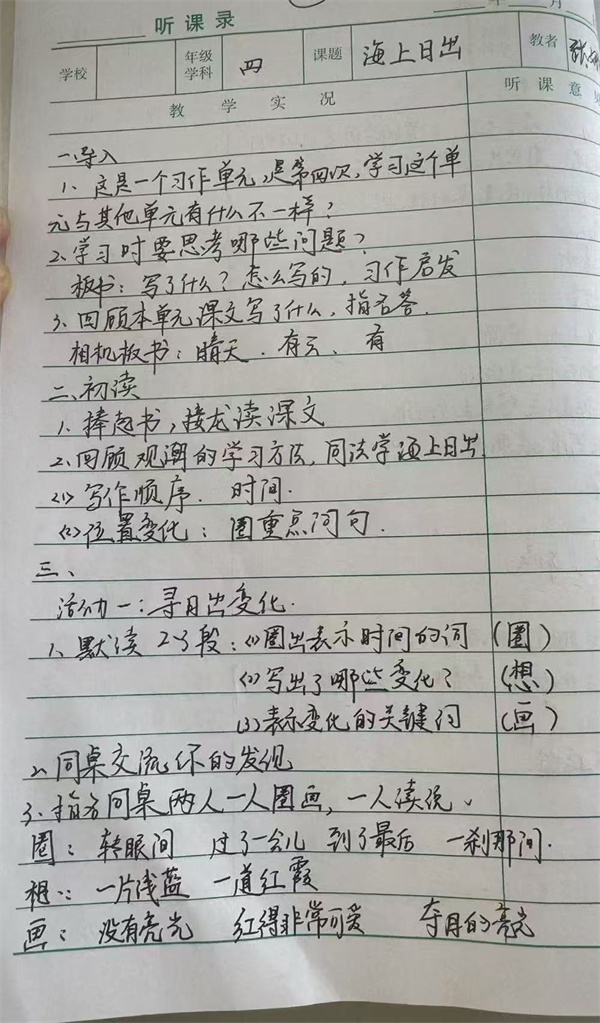 听课录
年 月
学校 年级学科 四 课题 海上日出 教者
教 学 实 况 听 课 意
一、导入
1、这是一个习作单元,是第四次,学习这个单
元与其他单元有什么不一样?
2、学习时要思考哪些问题?
板书:写了什么?怎么写的,习作启发
3、回顾本单元课文写了什么,指名答.
相机板书:晴天、有云、有
二、初读
1、捧起书,接龙读课文
2、回顾观潮的学习方法,同法学海上日出
(1)写作顺序. 时间.
(2)位置变化:圈重点词句.
三、
活动一:寻日出变化.
1、默读2-3段:(1)圈出表示时间的词 (圈)
(2)写出了哪些变化? (想)
(3)表示变化的关键词 (画)
2、同桌交流你的发现
3、指名同桌两人一人圈画,一人读说、
圈:转眼间 过了一会儿 到了最后 一刹那间.
想:一片浅蓝 一道红霞
画:没有亮光 红得非常可爱 夺目的亮光